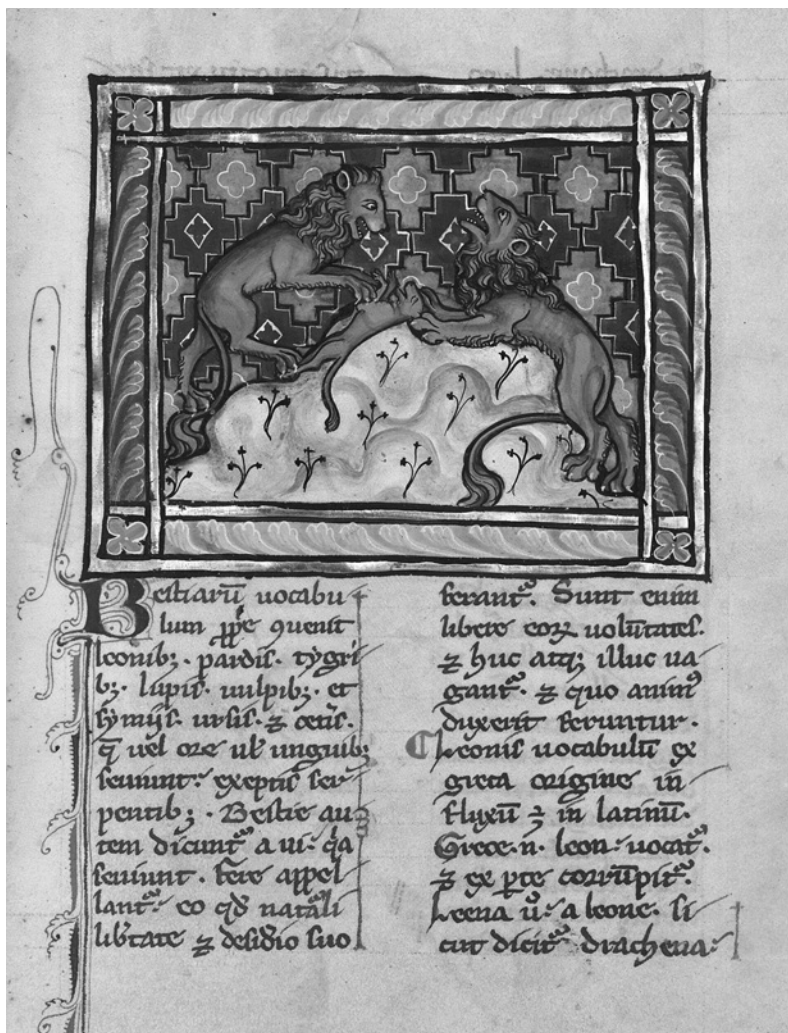 Bestiarū uocabu
lum ꝓpͥe ꝯuenit
leonibꝫ · pardis · tygri
bꝫ · lupis · uulpibꝫ · et
symijs · ursis · ⁊ cetis ·
q̄ uel ore ul᷑ unguibꝫ
seuiunt · exeptis ser
pentibꝫ · Bestie au
tem dicunt᷑ a ui · qͣ
seuiunt · fere appel
lant᷑ eo qd̓ natᷓali
lib̓tate ⁊ desid̓io suo
ferant᷑ · Sunt enim
libere eoꝝ uolūtates ·
⁊ huc atqꝫ illuc ua
gant᷑ · ⁊ quo animꝰ
duxerit feruntur ·
Leonis uocabulū ex
greca origine in
flexū ē in latinū ·
Grece · n · leon uocat᷑ ·
⁊ ex ꝑte corrūpit᷑ ·
Leena u̓ a leone · si
cut dicit᷑ drachena